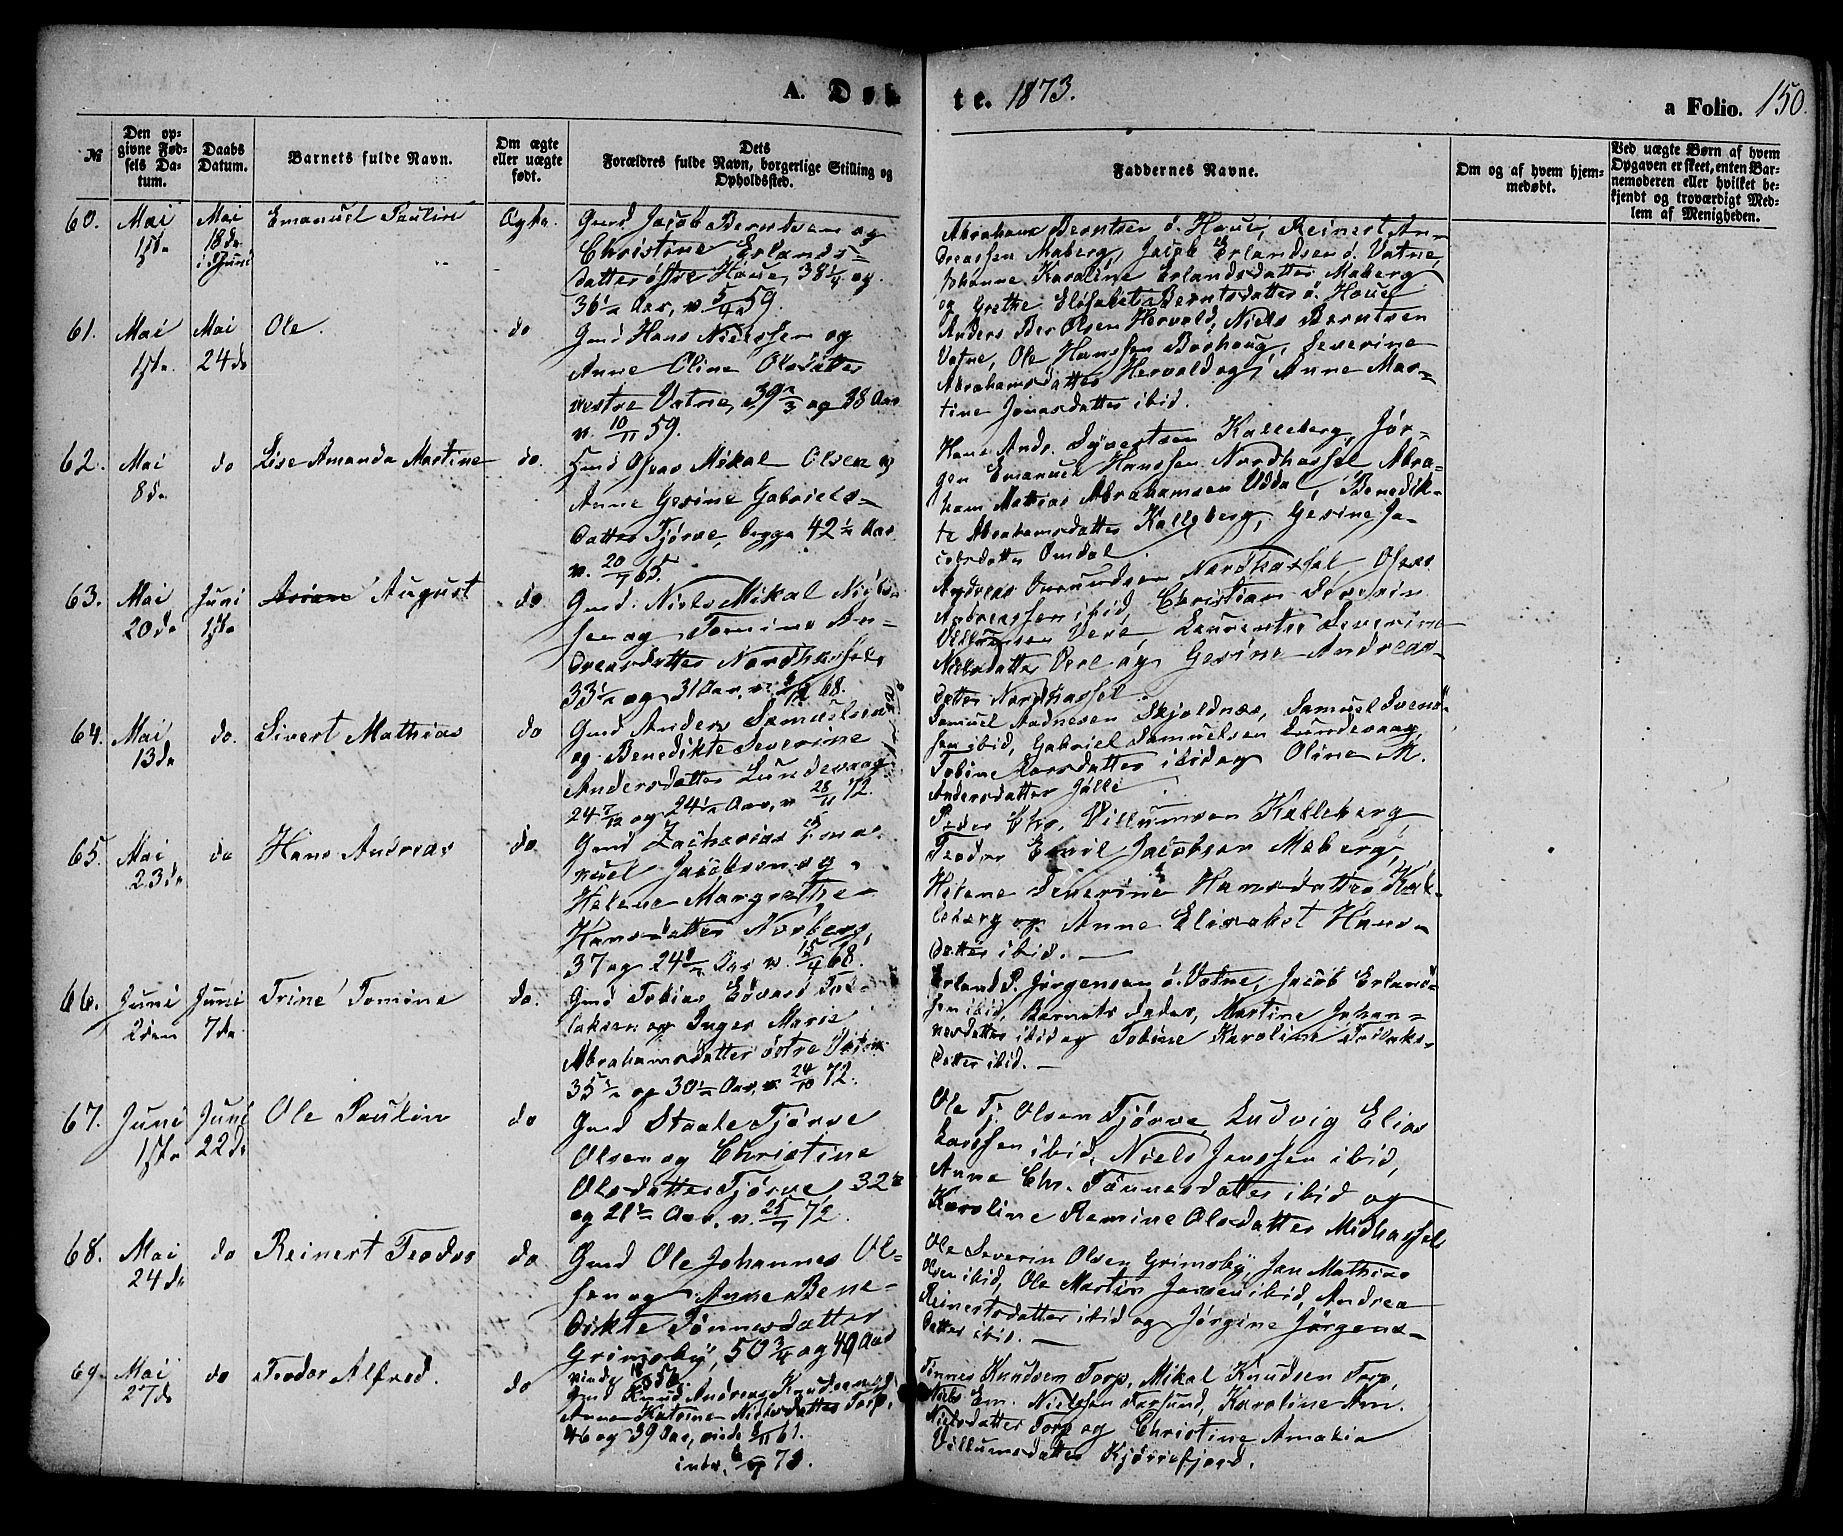 A. Døb
te. 1873.
a Folio. 150.
№
Den op-
givne Fød-
sels Da-
tum.
Daabs
Datum.
Barnets fulde Navn.
Om ægte
eller uægte
født.
Dets
Forældres fulde Navn, borgerlige Stilling og
Opholdssted.
Faddernes Navne.
Om og af hvem hjem-
medøbt.
Ved uægte Børn af hvem
Opgaven er skeet, enten Bar-
nemoderen eller hvilket be-
kjendt og troværdigt Med-
lem af Menigheden.
60.
Mai
1ste
Mai
18de
Emanuel Paulin
Ægte.
Gmd Jacob Berntsen og
Christine Erlands-
datter østre Houe, 38 1/4 og
36 1/2 Aar, v. 5/4 59.
Abraham Berntsen ø. Houe, Reinert An-
dreassen Maberg, Jacob Erlandsen ø. Vatne,
Johanne Karoline Erlandsdatter Maberg
og Grethe Elisabet Berntsdatter ø. Houe
61.
Mai
1ste
Mai
24de
Ole.
do
Gmd Hans Nielssen og
Anne Oline Olsdatter
vestre Vatne, 39 2/3 og 38 Aar
v. 10/11 59.
Anders Ber Olsen Hervold, Niels Berntsen
Vatne, Ole Hanssen Borhaug, Severine
Abrahamsdatter Hervold og Anne Mar-
tine Jonasdatter ibid.
62.
Mai
8de
do
Lise Amanda Martine
do.
Gmd Osvas Mikal Olsen og
Anne Gesine Gabriels-
datter Tjørve, begge 42 1/2 Aar
v. 20/7 65.
Hans Andr. Syvertsen Kalleberg, Jør-
gen Emanuel Hanssen Nordhassel, Abra-
ham Mathias Abrahamsen Uddal, Benedik-
te Abrahamsdatter Kalleberg, Gesine Ja-
cobsdatter Omdal
63.
Mai
20de
Juni
1ste
August
do
Gmd. Niels Mikal Niels-
sen og Tomine An-
dreasdatter Nordhassel,
33 1/2 og 31 Aar, v. 68.
Andreas Omundsen Nordhassel, Osvas
Andreassen ibid, Christian Severin
Villumsen Vere, Laurentse Severine
Nielsdatter Vere og Gesine Andreas-
datter Nordhassel.
64.
Mai
13de
do.
Sivert Mathias
do
Gmd Anders Samuelsen
og Benedikte Severine
Andersdatter Lundevaag
24 7/12 og 24 1/2 Aar, v 28/11 72.
Samuel Aadnesen Skjoldnæs, Samuel Svend-
sen ibid, Gabriel Samuelsen Lundevaag,
Tobine Larsdatter ibid og Oline M.
Andersdatter Jølle
65.
Mai
23de
do
Hans Andreas
do
Gmd Zacharias Ema-
nuel Jacobsen og
Helene Margrethe
Hansdatter Norberg,
37 og 24 1/2 Aar v. 15/4 68.
Peder Chr. Villumsen Kalleberg
Teodor Emil Jacobsen Maberg,
Helene Severine Hansdatter Kal-
leberg og Anne Elisabet Hans-
datter ibid.
66.
Juni
2den
Juni
7de
Trine Tomine
do.
Gmd Tobias Edvard Tol-
laksen og Inger Marie
Abrahamsdatter østre Vatne
35 1/2 og 30 1/2 Aar, v. 24/10 72.
Erland P. Jørgensen ø. Vatne, Jacob Erland-
sen ibid, Barnets Fader, Martine Johan-
nesdatter ibid og Tobine Karoline
datter ibid.
67.
Juni
1ste
Juni
22de
Ole Paulin
do
Gmd Staale Tjørve
Olsen og Christine
Olsdatter Tjørve, 32 1/2
og 21 1/2 Aar, v. 25/7 72.
Ole Tj. Olsen Tjørve, Ludvig Elias
Larssen ibid, Niels Janssen ibid,
Anne Chr. Tønnesdatter ibid og
Karoline Remine Olsdatter Midhassel
68.
Mai
24de
do
Reinert Teodor
do
Gmd Ole Johannes Ol-
sen og Anne Bene-
dikte Tønnesdatter
Grimsby, 50 3/4 og 40 Aar
Ole Severin Olsen Grimsby, Jan Mathias
Olsen ibid, Ole Martin Jansen ibid, Andrea
Reinertsdatter ibid og Jørgine Jørgens-
datter ibid.
69.
Mai
27de
do
Teodor Alfred.
do
Gmd Knud Andreas Knudsen og
Anne Katrine Nielsdatter Torp,
46 og 39 Aar, viede 61.
73.
Tønnes Knudsen Torp, Mikal Knudsen Torp,
Niels Em. Nielssen Farsund, Karoline Am.
Nielsdatter Torp og Christine Amalia
Villumsdatter Kjørrefjord.